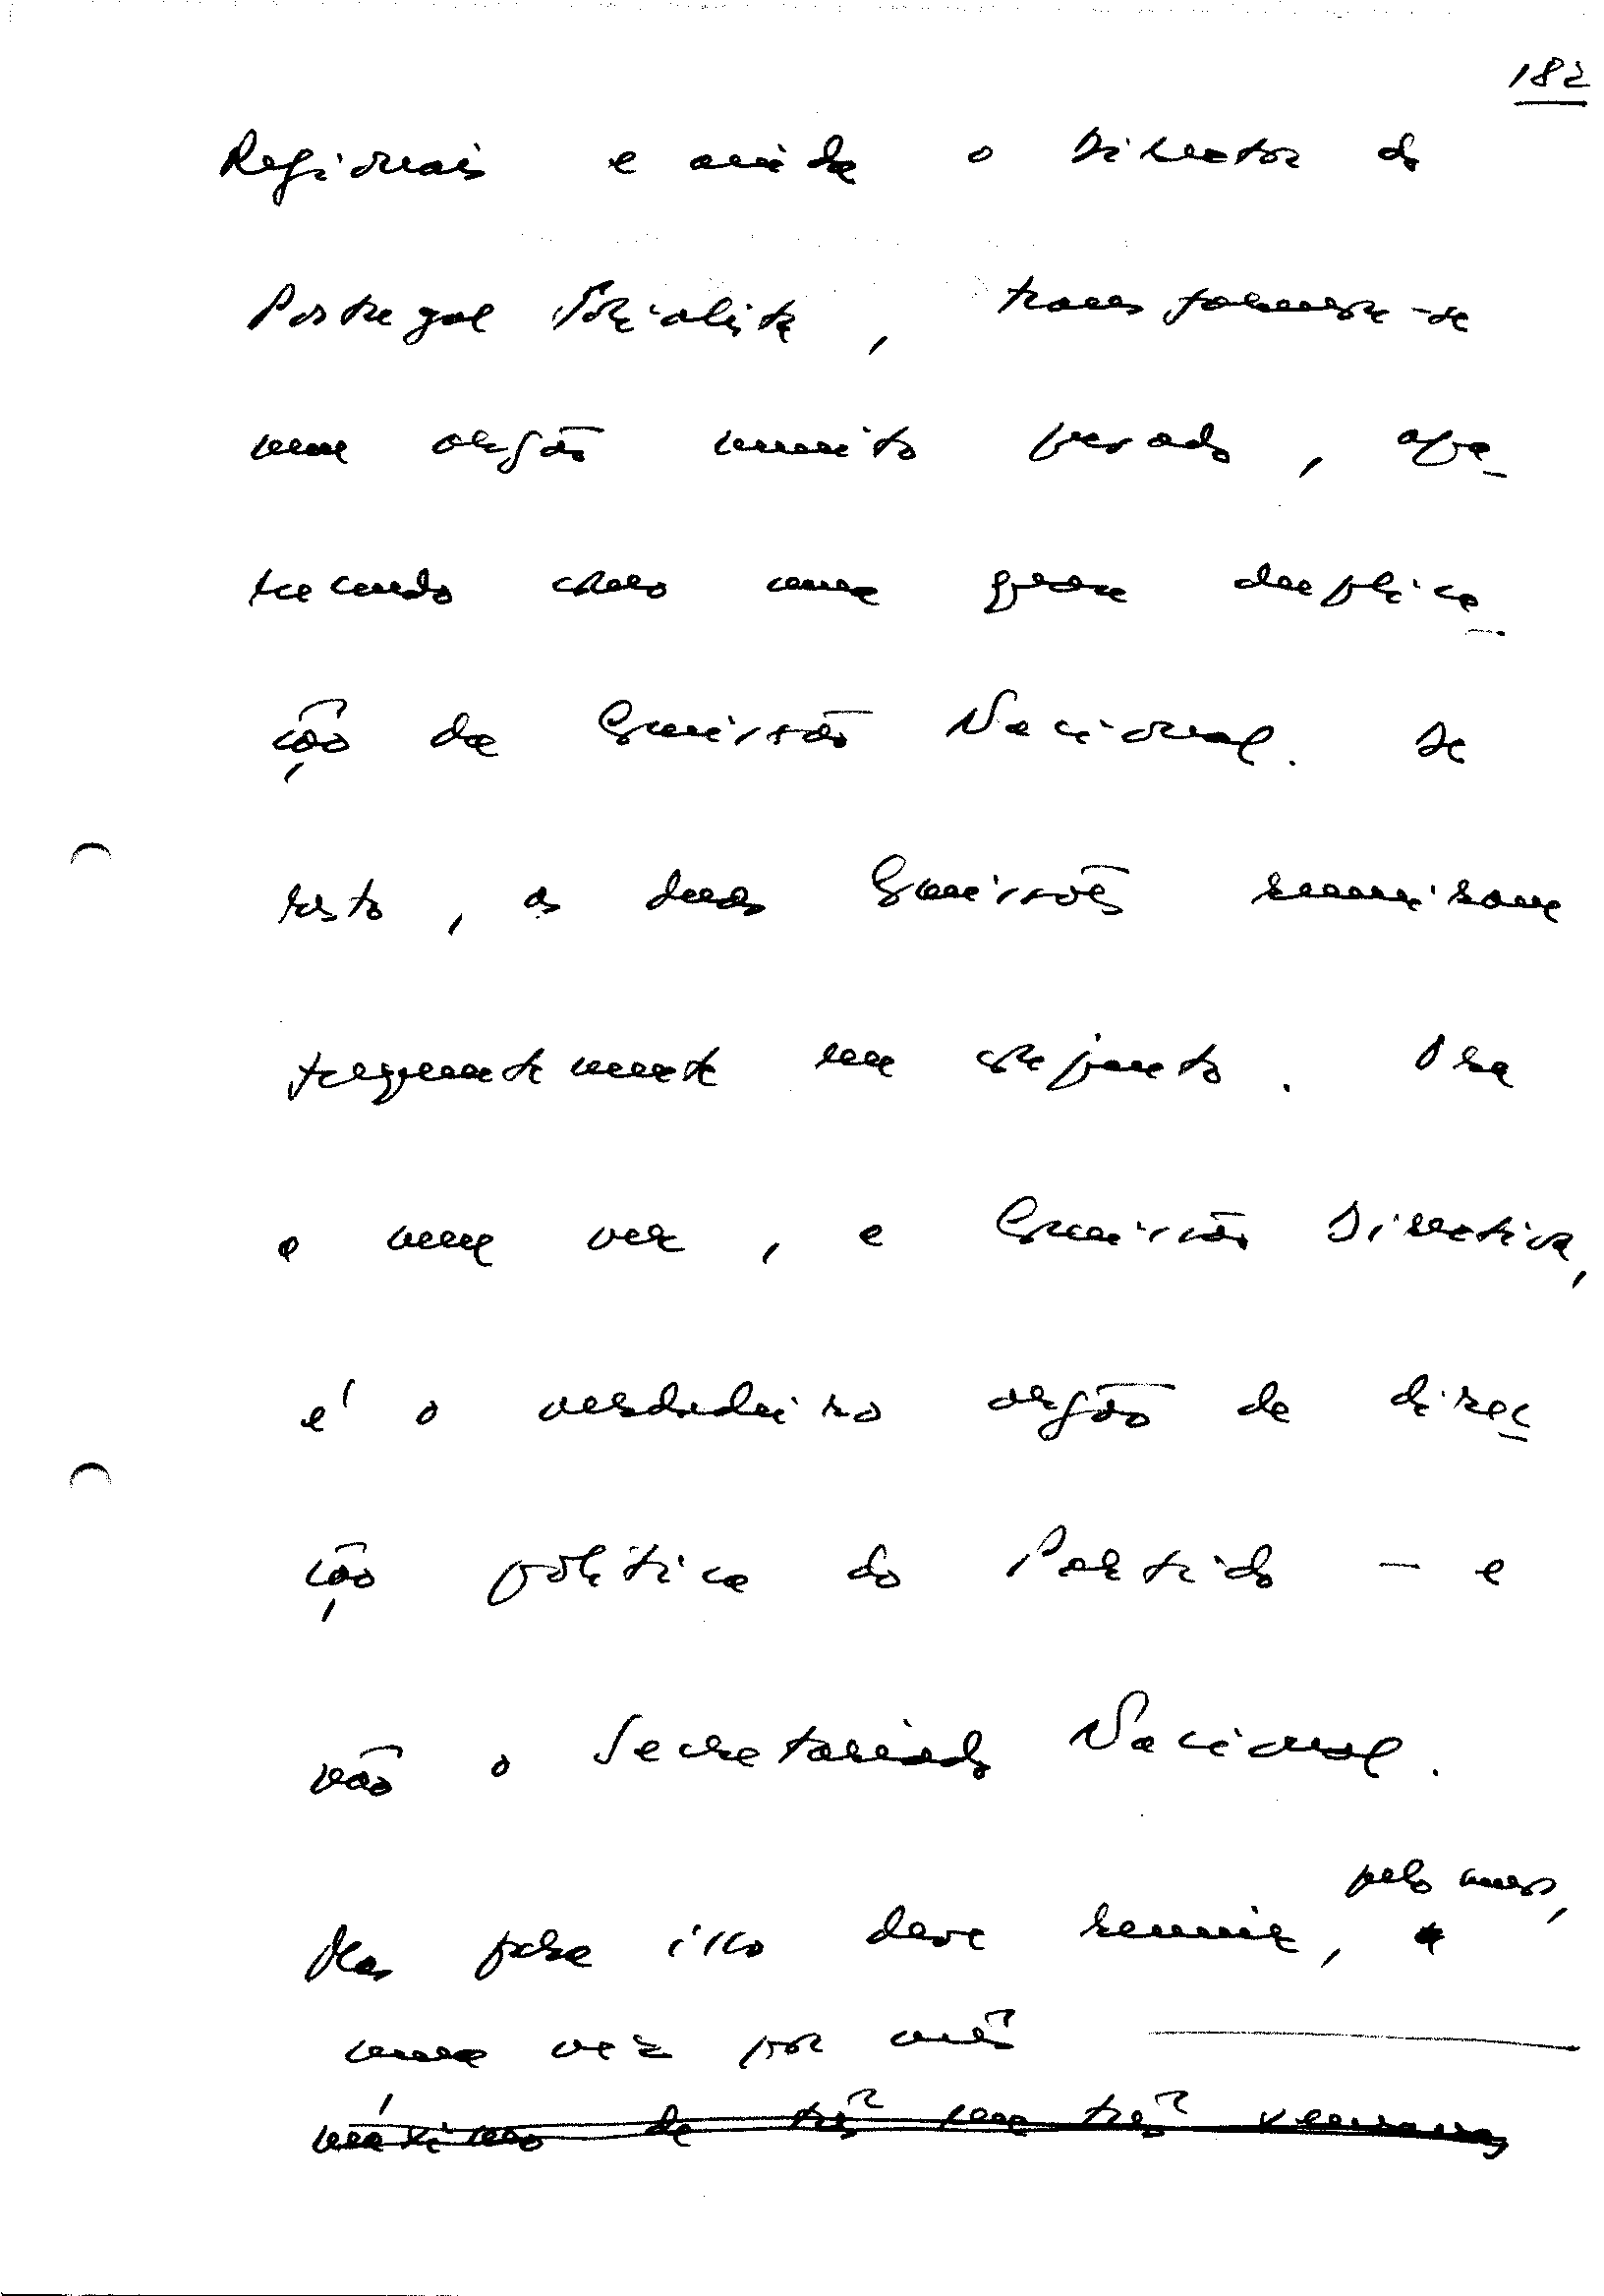 182
Regionais e ainda o Director do
Portugal Socialista, transformou-se
num orgão muito pesado, apa-
recendo como uma quase duplica-
ção da Comissão Nacional. De
resto, as duas Comissões reuniram
frequentemente em conjunto. Ora
a meu ver, a Comissão Directiva,
é o verdadeiro orgão de direc-
ção política do Partido - e
não o Secretariado Nacional.
pelo menos,
Mas para isso deve reunir,
uma vez por mês
máximo de três em três semanas